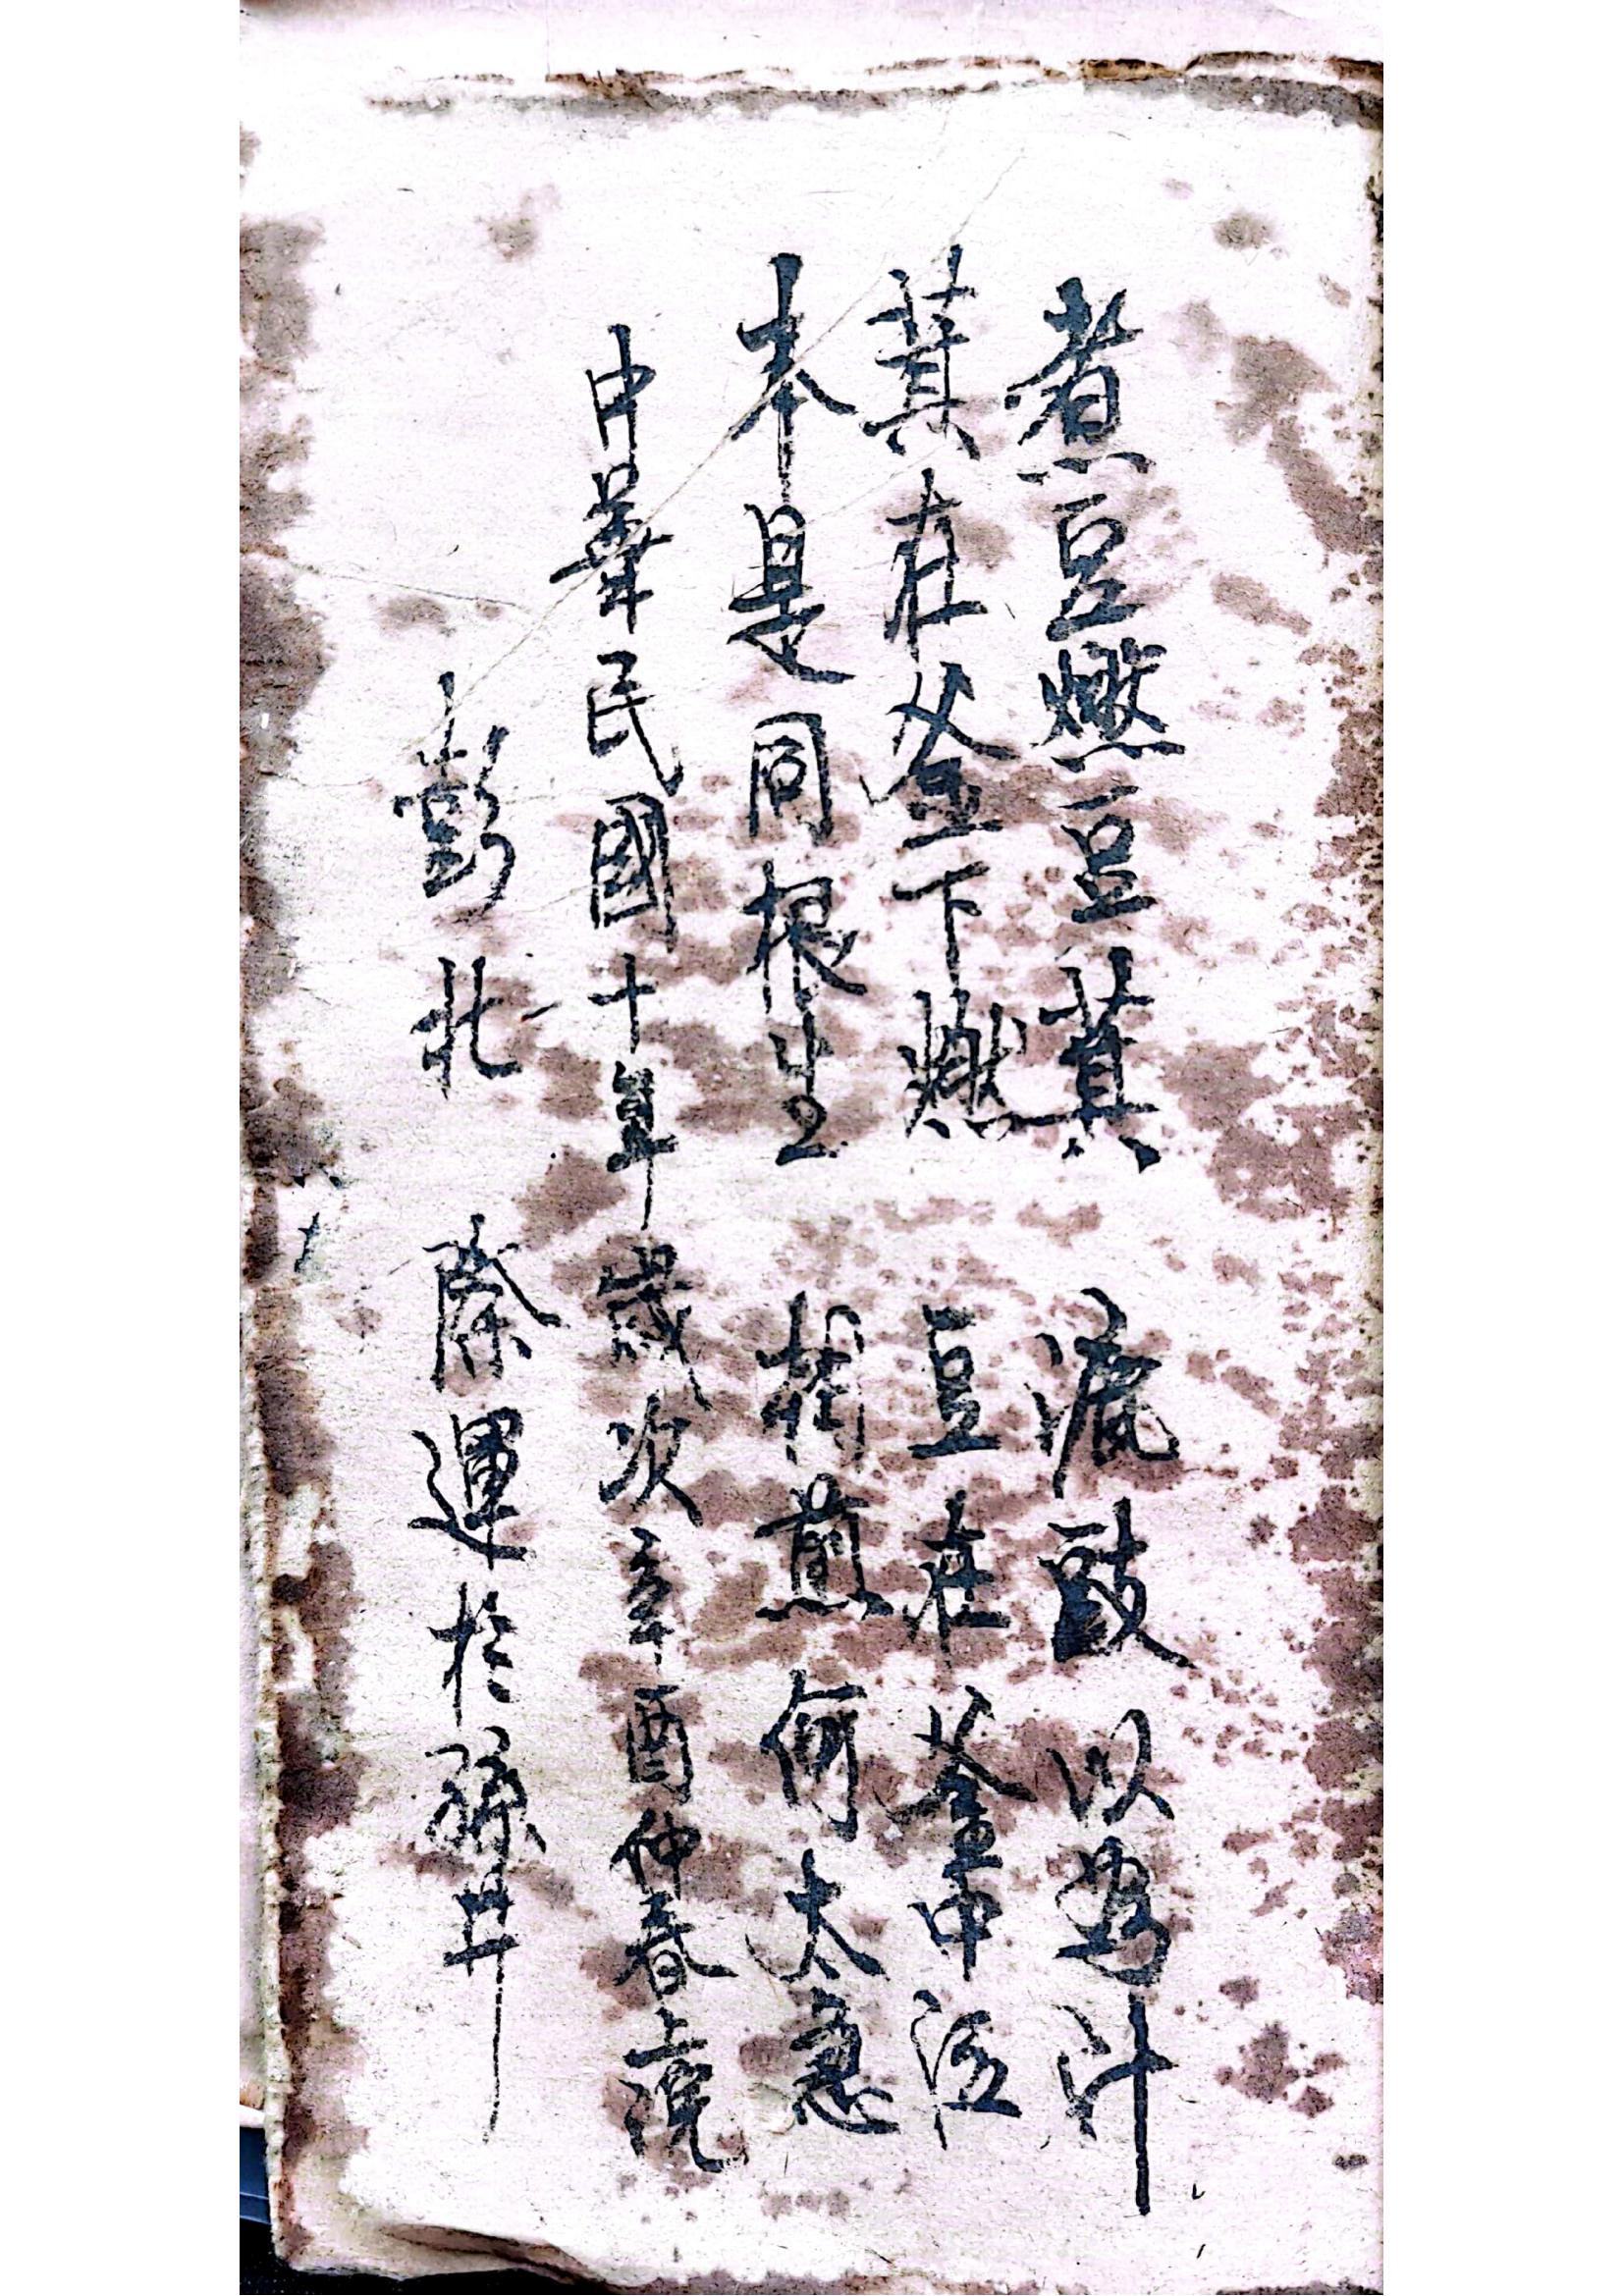 煮豆燃豆萁 漉豉以為汁
萁在釜下燃 豆在釜中泣
本是同根生 相煎何太急
中華民國十年歲次辛酉仲春上浣
彭北 除運於孫井